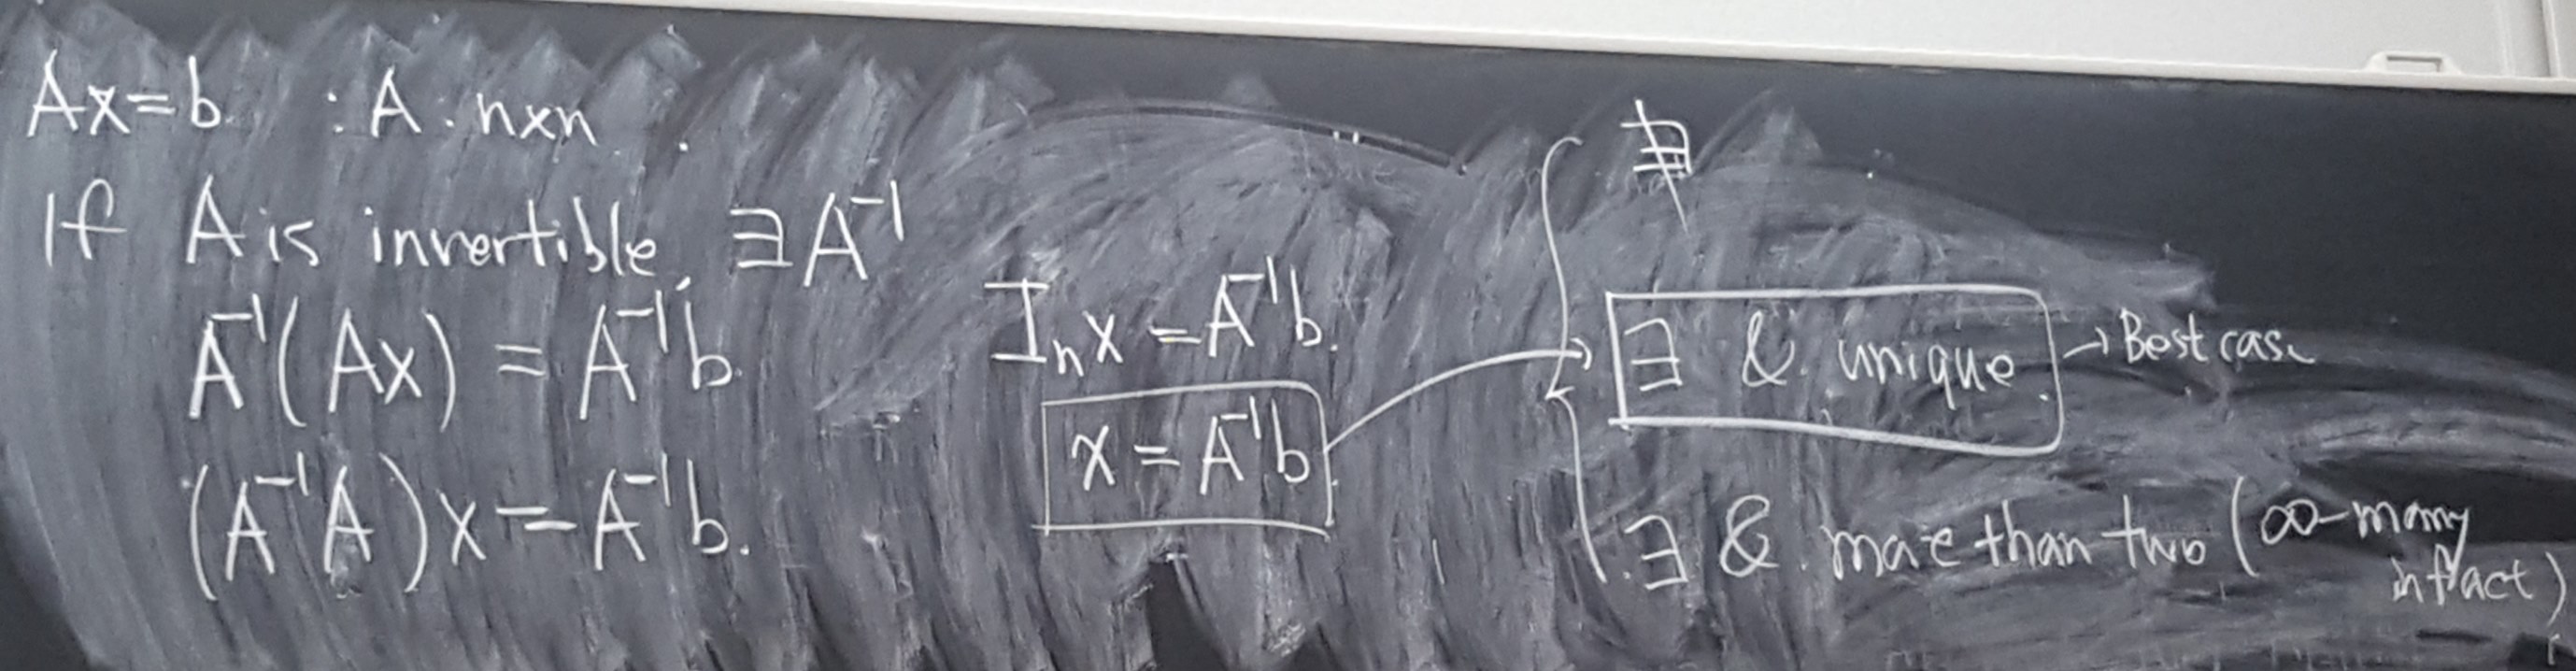 Ax=b. : A : n×n.
If A is invertible, ∃A⁻¹
A⁻¹(Ax) = A⁻¹b.
(A⁻¹A)x = A⁻¹b.
Iₙx = A⁻¹b.
x = A⁻¹b
∄
∃ & unique. → Best case
∃ & more than two (∞-many
in fact)